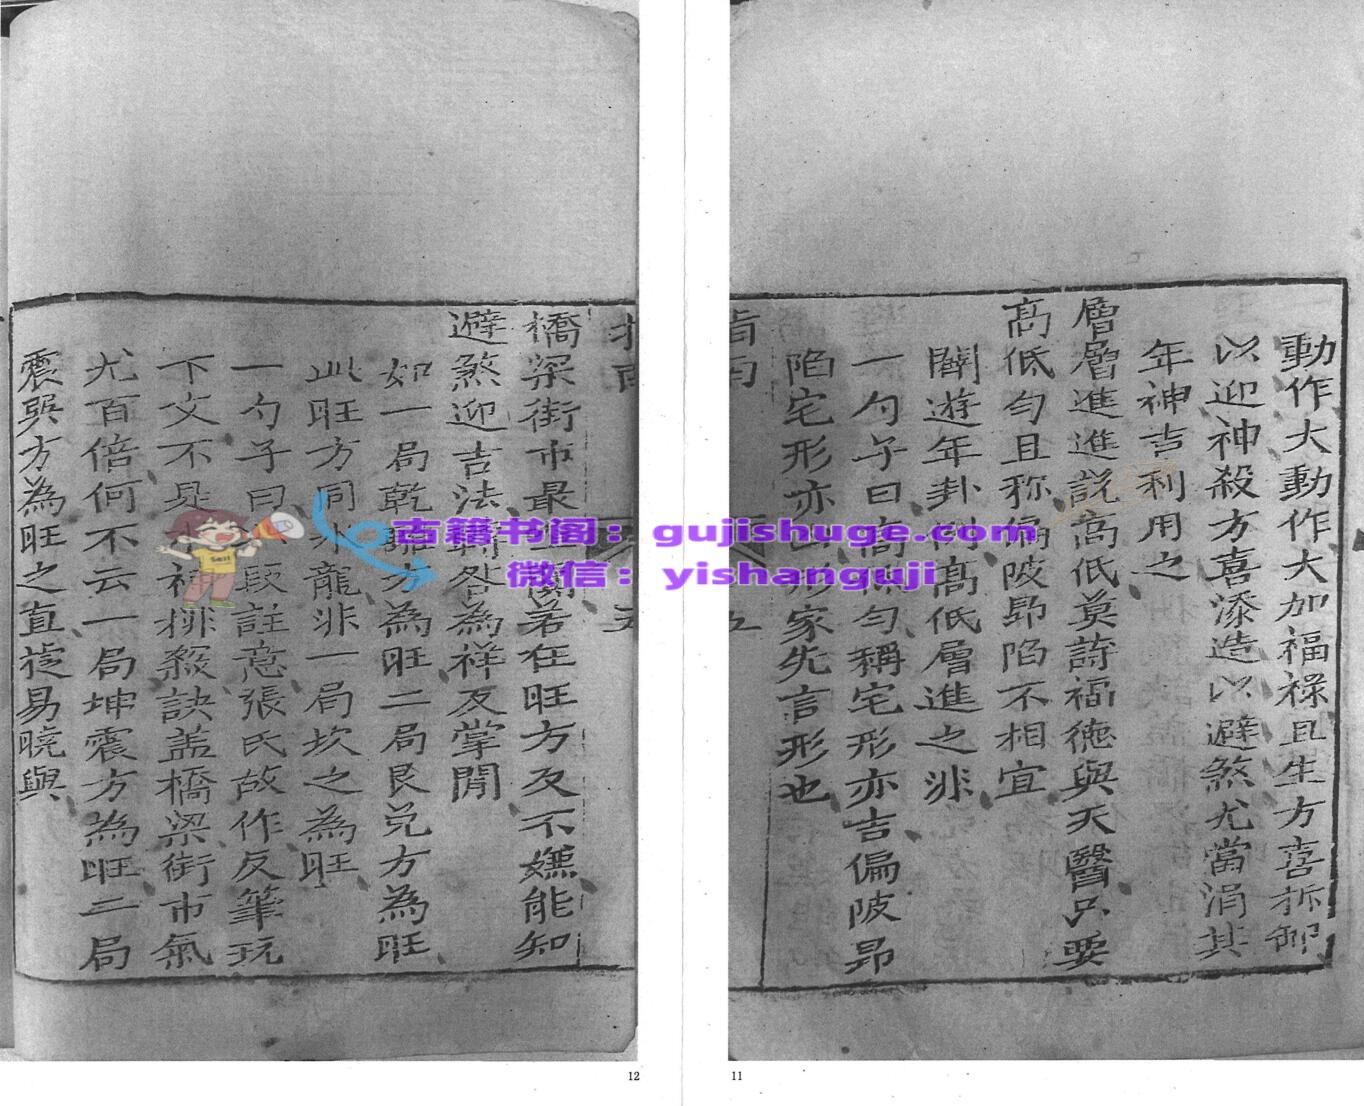 動作大動作大加福祿且生方喜拆卸
以迎神殺方喜添造以避煞尤當涓其
年神吉利用之
層層進進說高低莫誇福德與天醫只要
高低勻且称偏陂昂陷不相宜
闢遊年卦例高低層進之非
一勺子曰高低勻稱宅形亦吉偏陂昂
陷宅形亦凶形家先言形也
指南
五
橋梁街市最関若在旺方及不嫌能知
避煞迎吉法轉咎為祥反掌閒
如一局乾離方為旺二局艮兌方為旺
此旺方同水龍非一局坎之為旺
一勺子曰段註意張氏故作反筆玩
下文不是福排殺訣盖橋梁街市氣
尤百倍何不云一局坤震方為旺二局
震巽方為旺之直捷易曉與
古籍书阁：gujishuge.com
微信：yishanguji
12
11